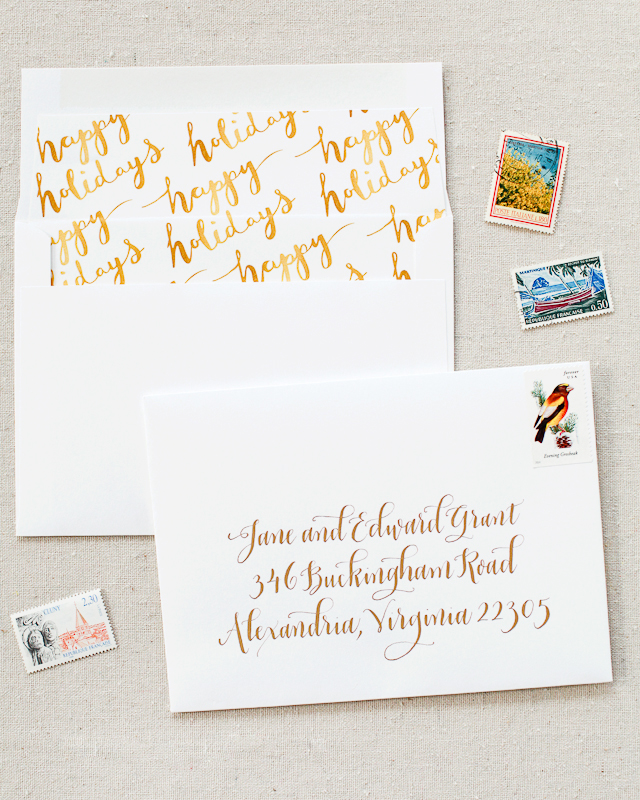 happy
holidays
holidays
happy
happy
holidays
happy
holidays
holidays
happy
POSTE ITALIANE
MARTINIQUE
REPUBLIQUE FRANÇAISE 0,50
forever
USA
Evening Grosbeak
Jane and Edward Grant
346 Buckingham Road
Alexandria, Virginia 22305
CLUNY 2,30